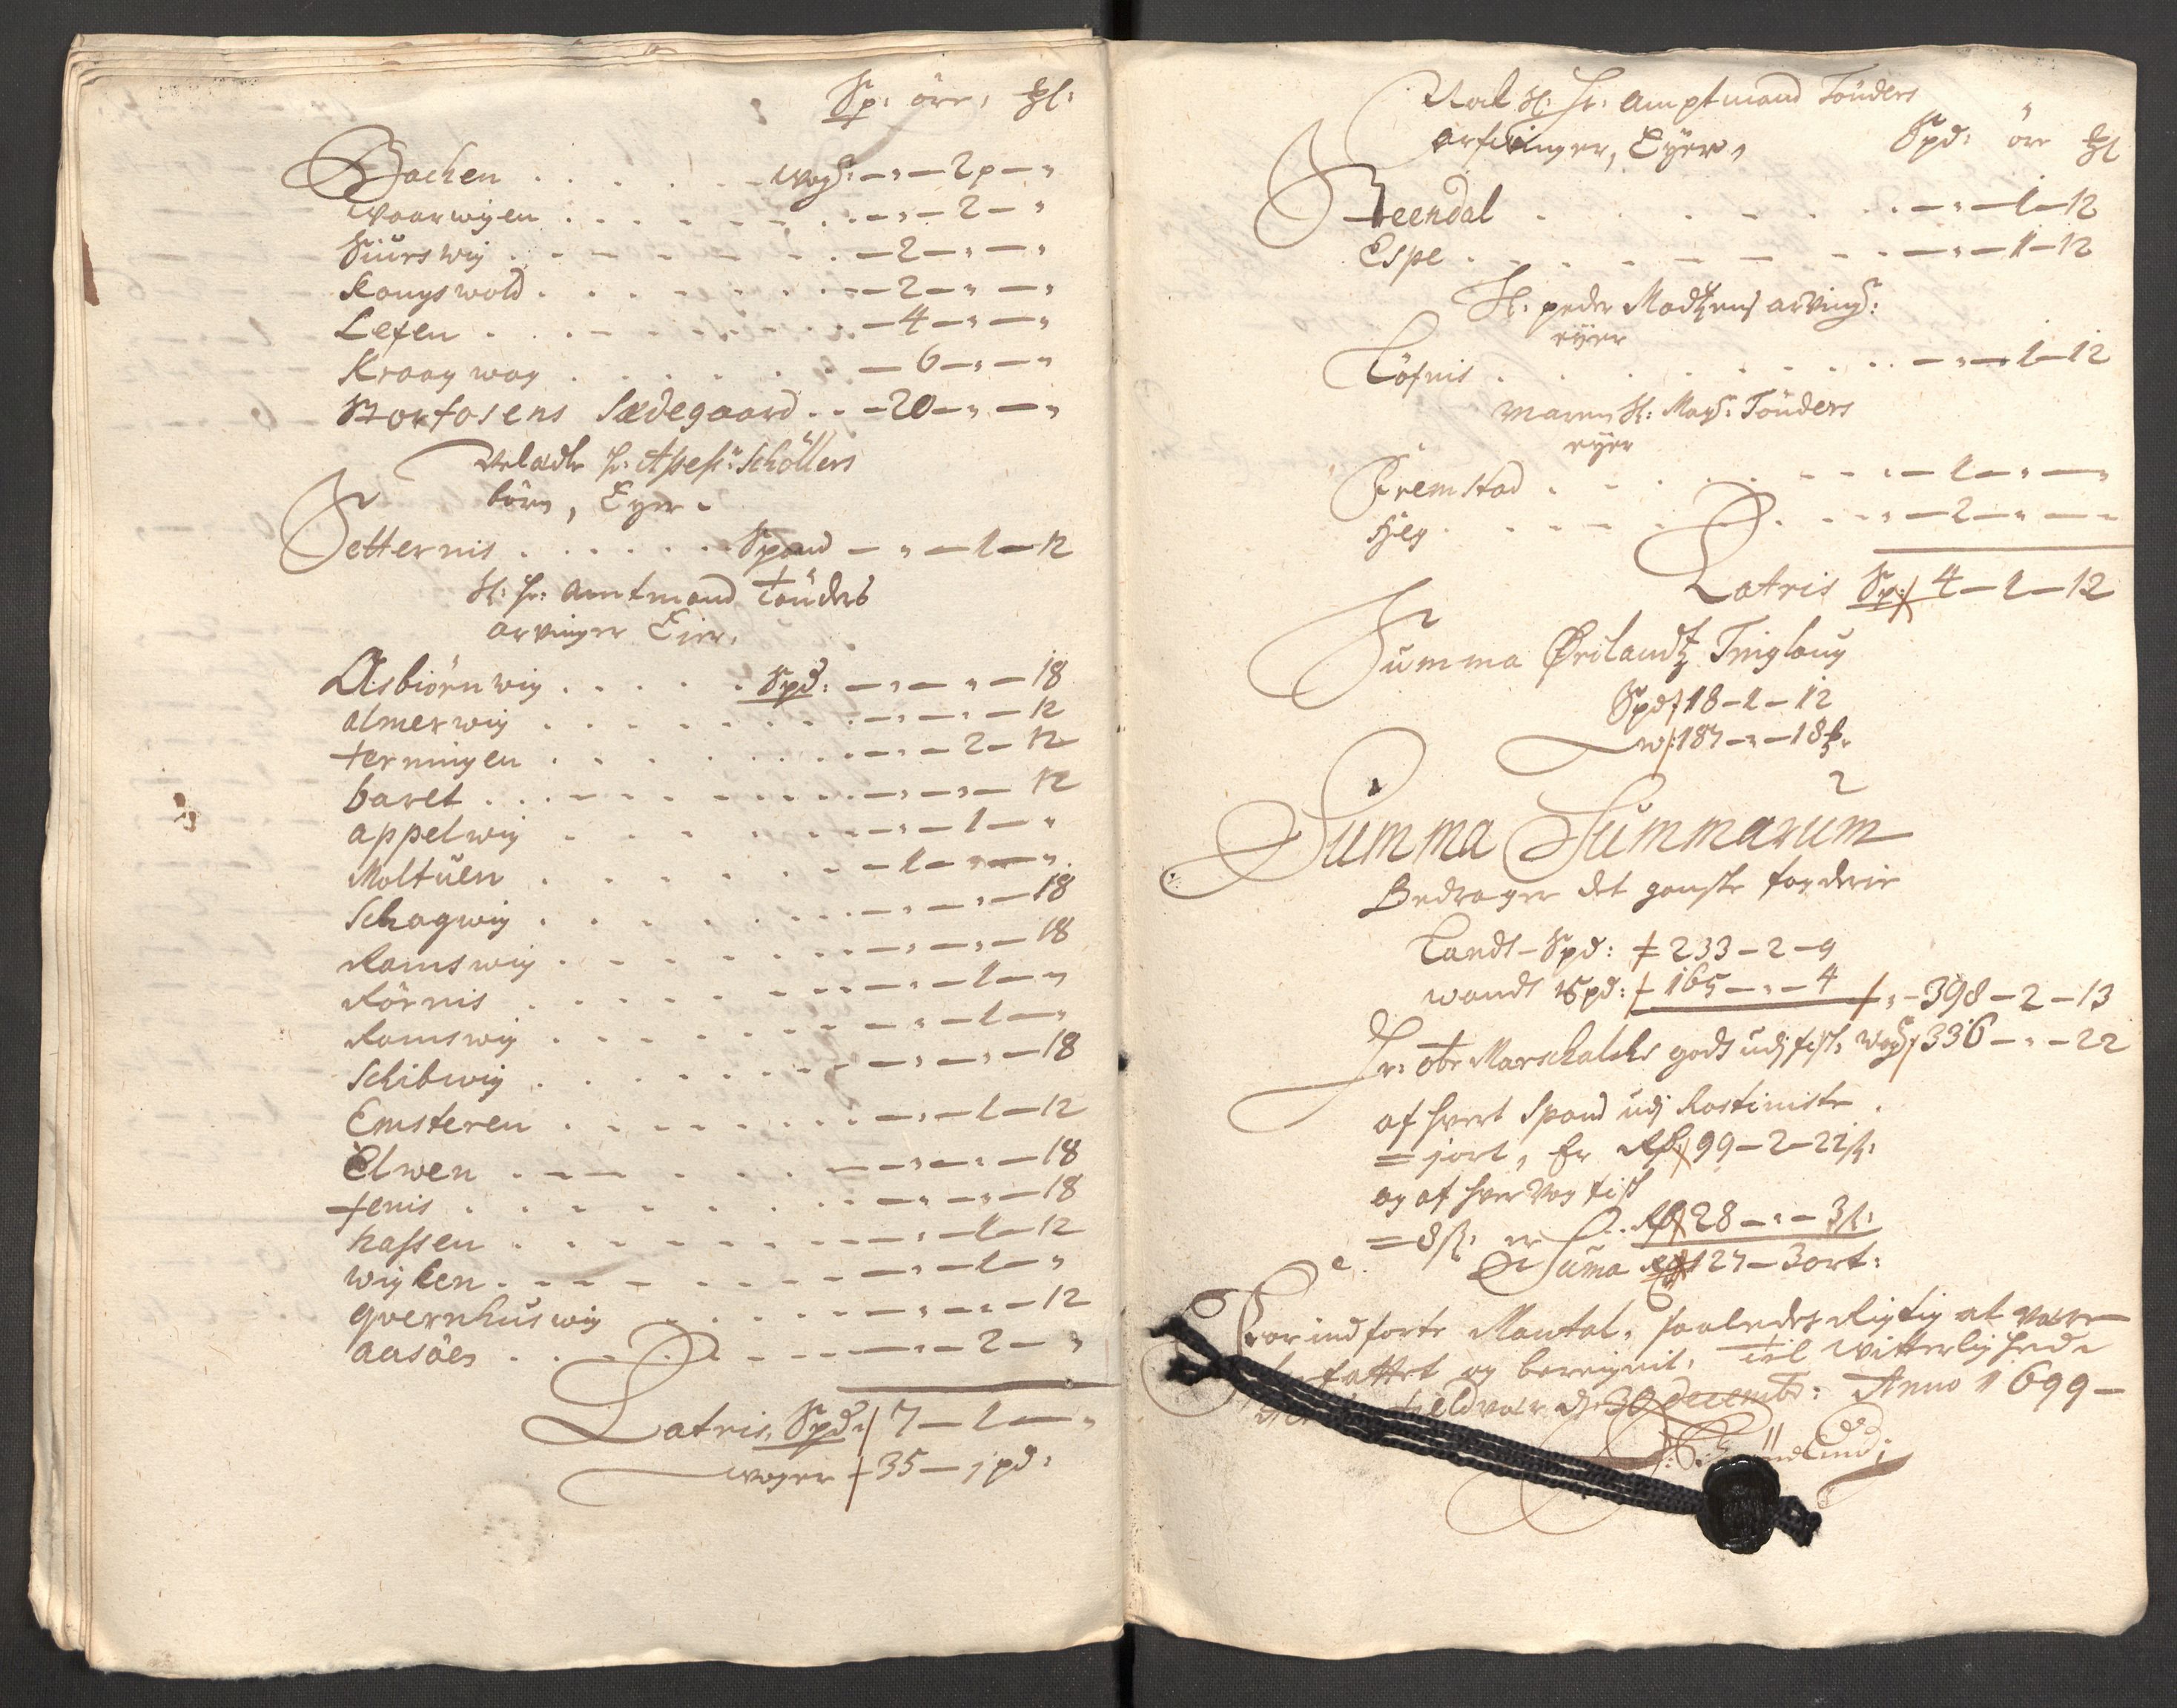 Sp: öre: ₰l:
Bachen . . . . . . wog: — " — 2p — "
Waarwigen . . . . . . . — " — 2 — "
Siurswig . . . . . . . — 2 — " — "
Kongswold . . . . . . . — 2 — " — "
Lefen . . . . . . . — 4 — " — "
Kraagwag . . . . . . — 6 — " — "
Storfosens Sædegaard . . — 20 — " — "
Velædle Hr: Assess: Schöllers
börn, Eyer.
Setternis . . . . . . Spand — " — 1 — 12
Sl: Hr: Amtmand Tönders
arvinger Eier.
Asbiörnwig . . . . . Spd: — " — " — 18
almerwig . . . . . . . — " — " — 12
terningen . . . . . . . — " — 2 — 12
baret . . . . . . . — " — " — 12
appelwig . . . . . . . — " — 1 — "
Moltuen . . . . . . — 1 — " — "
Schagwig . . . . . . . — " — " — 18
Ramswig . . . . . . . — " — " — 18
Körnis . . . . . . . — " — 1 — "
Ramswig . . . . . . . — " — 1 — "
Schibwig . . . . . . . — " — " — 18
Emsteren . . . . . . . — " — 1 — 12
Elwen . . . . . . . — " — " — 18
fenis . . . . . . . — " — " — 18
hassen . . . . . . . — " — 1 — 12
wiglen . . . . . . . — " — 1 — "
qvernhuswig . . . . . — " — " — 12
aasöen . . . . . . . — " — 2 — "
Latris, Spd: 7 — 1 — "
woger 35 — 1 pd:
Sl: Hr: Amptmand Tönders
arfvinger, Eyer, Spd: öre ₰l
Reendal . . . . . . . — " — 1 — 12
Espe . . . . . . . — " — 1 — 12
Sl. peder Madtzens arving:
eyer
Löfnis . . . . . . . — " — 1 — 12
Maren Sl: Mag: Tönders
eyer
Fremstad . . . . . . . — 1 — " — "
Hieg . . . . . . . — 2 — " — "
Latris Sp: 4 — 1 — 12
Summa Ørelandtz Tinglaug
Spd: 18 — 1 — 12
w: 187 — " — 18
Summa Summarum
Bedrager det gandske fogderie
Landt - Spd: 233 — 2 — 9
wandt Spd: 165 — " — 4 — 398 — 2 — 13
Hr: obr Marschalchs gods udj fisk: Wog: 336 — " — 22
af hvert Spand udj Rostieniste
= 1 ort, Er Rd: 99 — 2 — 22 s:
og af hver Vog fisk
= 8 s: er Rd: 28 — " — 3 s:
Er Suma Rd: 127 — 3 ort:
Forindførte Mantal, saaledes Rigtig at være
forfattet og beregnit, Til witterlighed
dj: 30 decembr: Anno 1699 —